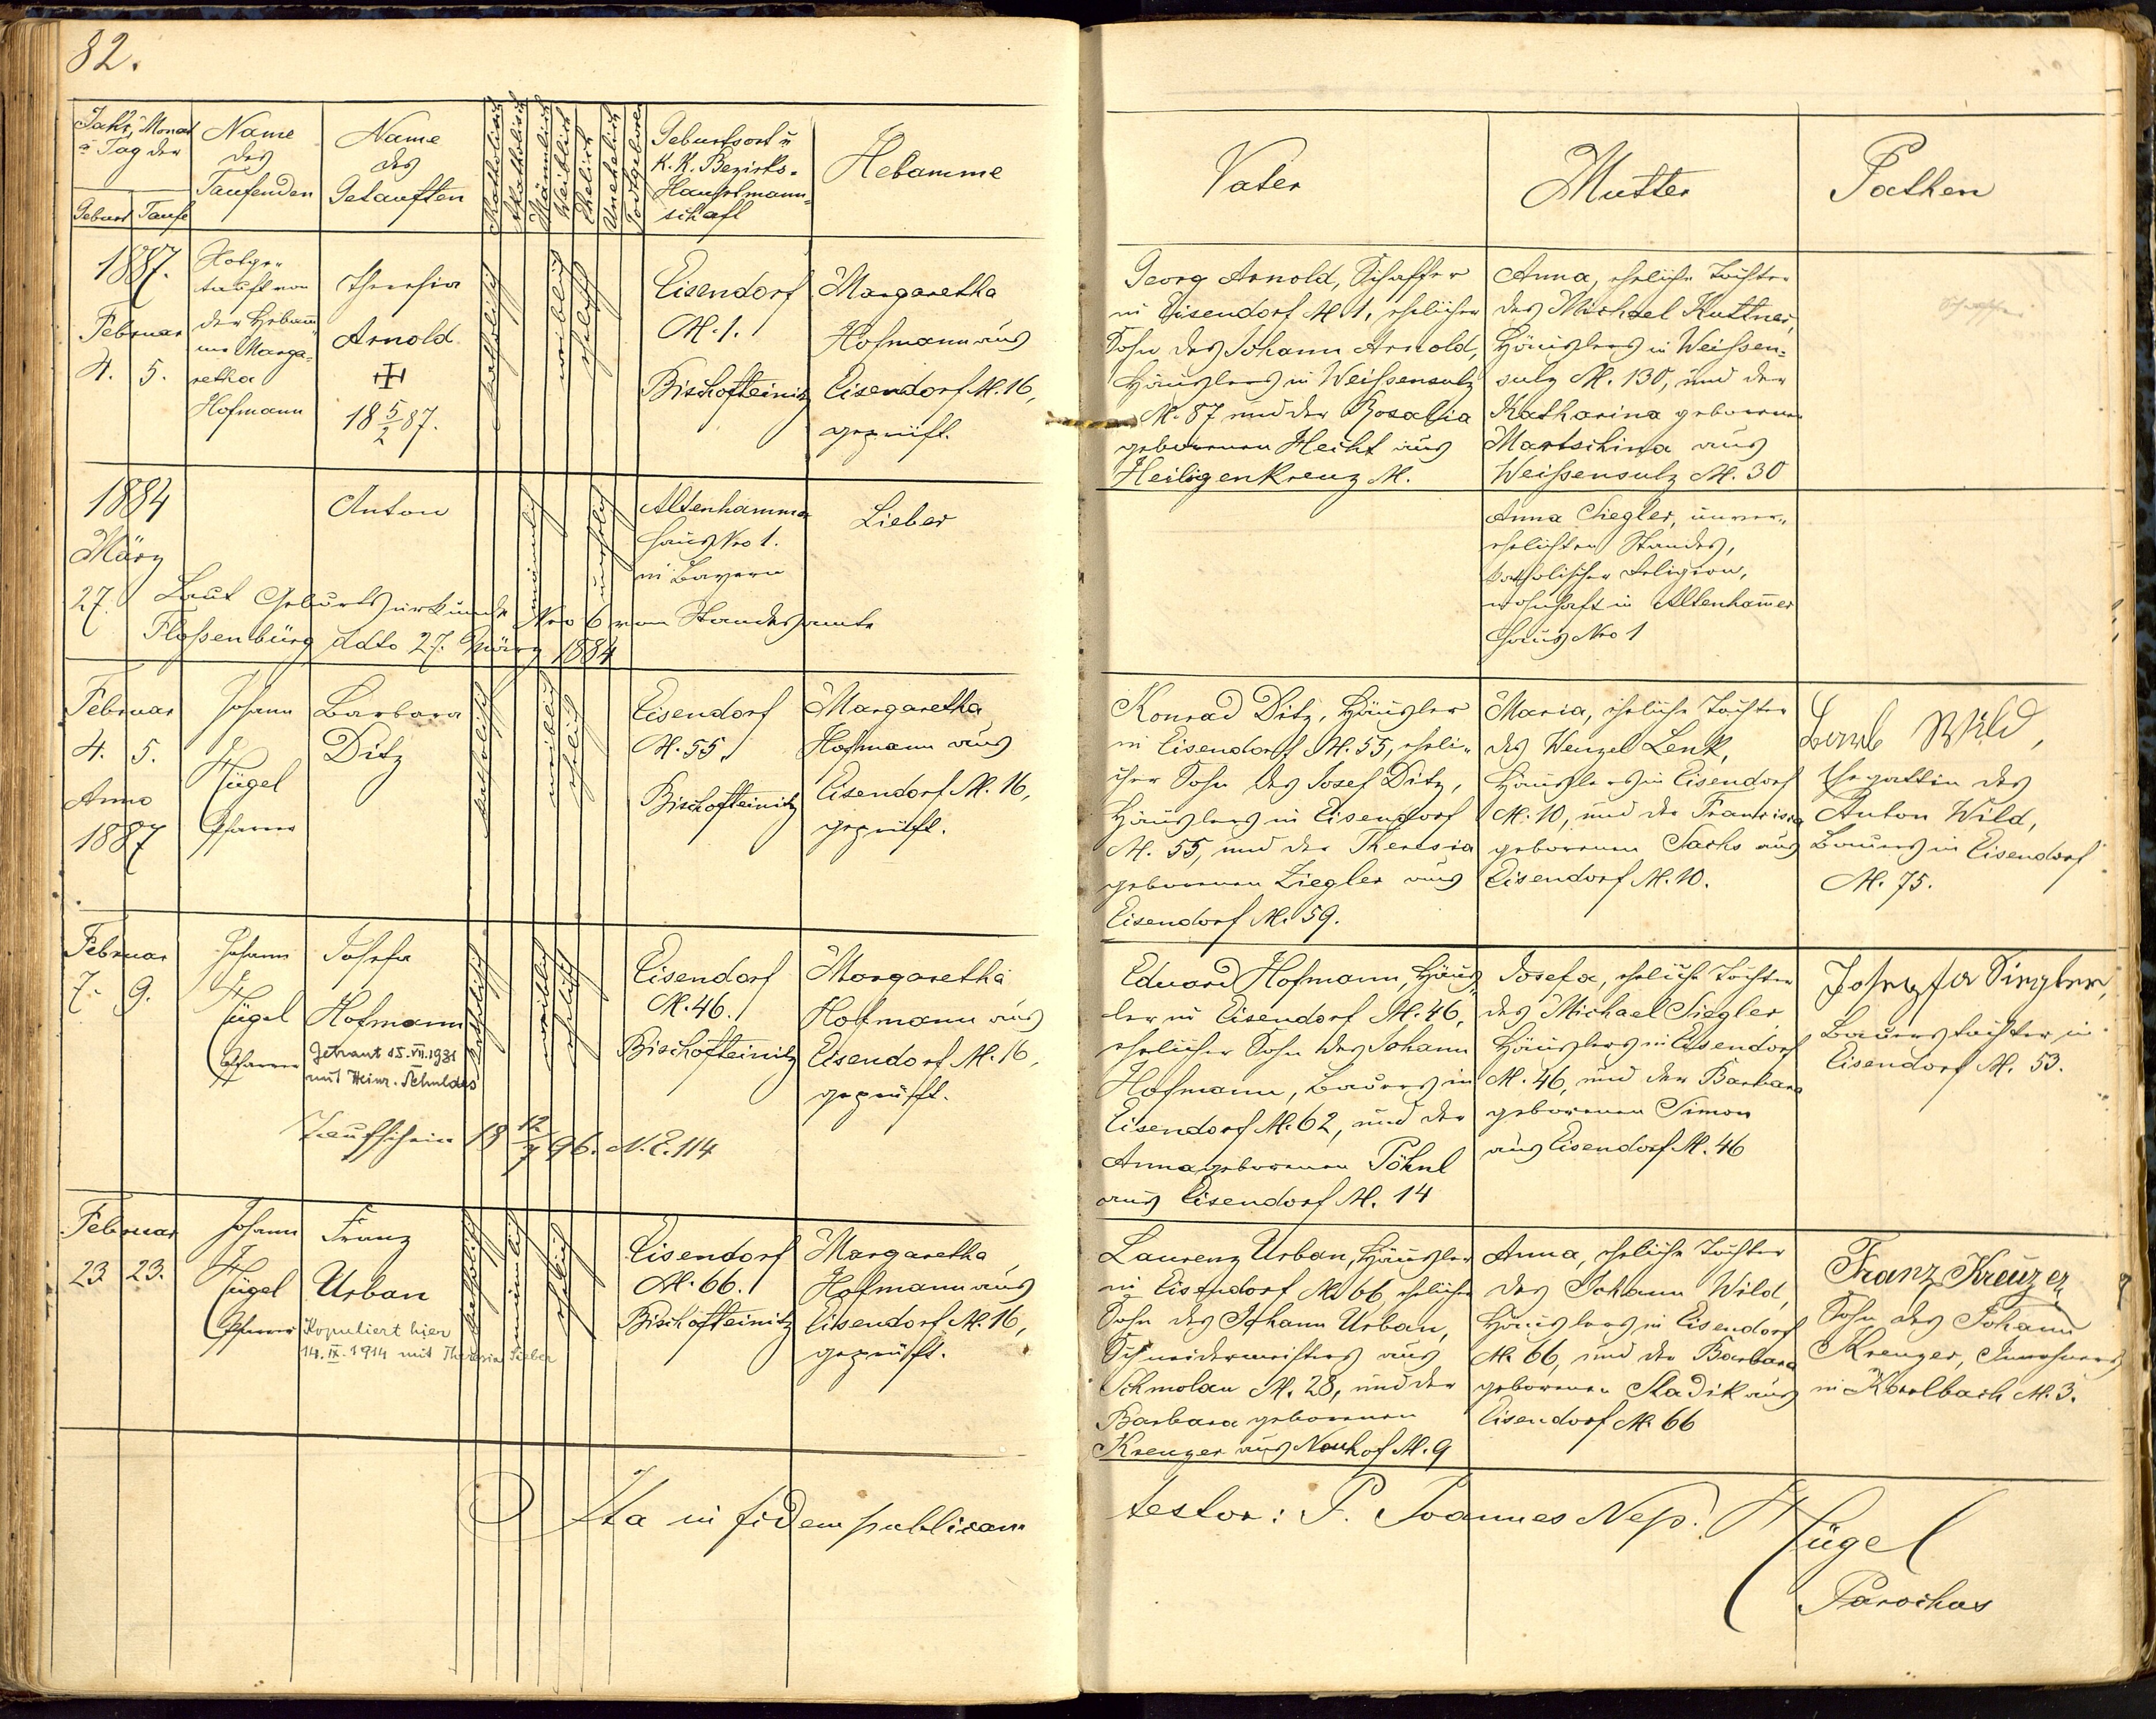 82.
Jahr, Monat
u Tag der
Geburt Taufe
Name
des
Taufenden
Name
des
Getauften
Katholisch
Akatholisch
Männlich
Weiblich
Ehelich
Unehelich
Todtgeboren
Geburtsort u
K. K. Bezirks-
Hauptmann-
schaft
Hebamme
1887.
Februar
4. 5.
Nothge-
tauft von
der Hebam̄-
me Marga-
retha
Hofmann
Theresia
Arnold
18 5/2 87.
katholisch
weiblich
ehelich
Eisendorf
N. 1.
Bischofteinitz
Margaretha
Hofmann aus
Eisendorf N. 16,
geprüft.
1884
März
27.
Anton
männlich
unehelich
Altenhammer
Haus Nro 1.
in Bayern
Lieber
Laut Geburtsurkunde Nro 6 vom Standesamte
Flossenbürg ddto 27. März 1884
Februar
4. 5.
Anno
1887
Johann
Hügel
Pfarrer
Barbara
Ditz
katholisch
weiblich
ehelich
Eisendorf
N. 55.
Bischofteinitz
Margaretha
Hofmann aus
Eisendorf N. 16,
geprüft.
Februar
7. 9.
Johann
Hügel
Pfarrer
Josefa
Hofmann
Getraut 15. VII. 1931
mit Heinr. Schuldes
katholisch
weiblich
ehelich
Eisendorf
N. 46.
Bischofteinitz
Margaretha
Hofmann aus
Eisendorf N. 16,
geprüft.
Taufschein 18 12/7 96. N. E. 114
Februar
23. 23.
Johann
Hügel
Pfarrer
Franz
Urban
Kopuliert hier
14. IX. 1914 mit Theresia Lieber
katholisch
männlich
ehelich
Eisendorf
N. 66.
Bischofteinitz
Margaretha
Hofmann aus
Eisendorf N. 16,
geprüft.
Ita in fidem publicam
Vater
Mutter
Pathen
Georg Arnold, Schaffer
in Eisendorf N 1, ehelicher
Sohn des Johann Arnold,
Häuslers in Weißensulz
N. 87 und der Rosalia
geborenen Hecht aus
Heiligenkreuz N.
Anna, eheliche Tochter
des Michael Kuttner,
Häuslers in Weißen-
sulz N. 130, und der
Katharina geborenen
Martschina aus
Weißensulz N. 30
Anna Siegler, unver-
ehelichten Standes,
katholischer Religion,
wohnhaft in Altenham̄er
Haus Nro 1
Konrad Ditz, Häusler
in Eisendorf N. 55, eheli-
cher Sohn des Josef Ditz,
Häuslers in Eisendorf
N. 55, und der Theresia
geborenen Ziegler aus
Eisendorf N. 59.
Maria, eheliche Tochter
des Wenzel Lenk,
Häuslers in Eisendorf
N. 10, und der Francisca
geborenen Sachs aus
Eisendorf N. 10.
Barb Wild,
Ehegattin des
Anton Wild,
Bauers in Eisendorf
N. 75.
Eduard Hofmann, Häus-
ler in Eisendorf N. 46,
ehelicher Sohn des Johann
Hofmann, Bauers in
Eisendorf N. 62, und der
Anna geborenen Pöhnl
aus Eisendorf N. 14
Josefa, eheliche Tochter
des Michael Siegler
Häuslers in Eisendorf
N. 46, und der Barbara
geborenen Simon
aus Eisendorf N. 46
Josepfa Siegler,
Bauerstochter in
Eisendorf N. 53.
Laurenz Urban, Häusler
in Eisendorf N. 66 ehelicher
Sohn des Johann Urban,
Schneidermeisters aus
Schmolau N. 28, und der
Barbara geborenen
Kreuzer aus Neuhof N. 9
Anna, eheliche Tochter
des Johann Wild,
Häuslers in Eisendorf
N. 66, und der Barbara
geborenen Sladik aus
Eisendorf N. 66
Franz Kreuzer,
Sohn des Johann
Kreuzer, Inwohners
in Karlbach N. 3.
testor: P. Joannes Nep. Hügel
Parochus